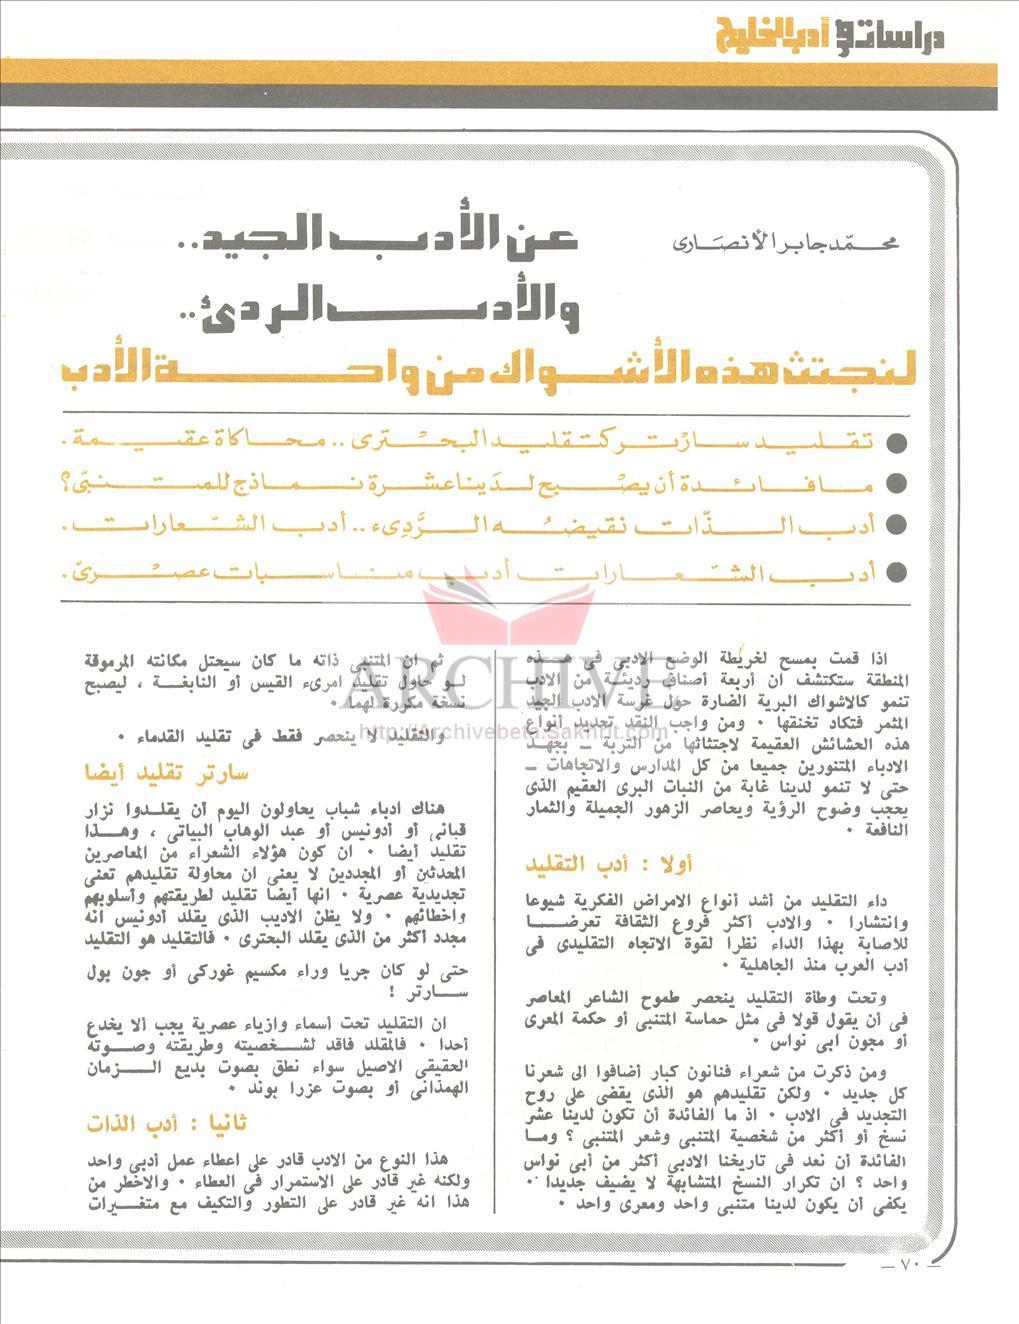 دراسات في أدب الخليج
محمّد جابر الأنصاری
عن الأدب الجيد..
والأدب الردئ..
لنجتث هذه الأشواك من واحة الأدب
● تقليد سارتر كتقليد البحتری .. محاكاة عقيمة.
● ما فائدة أن يصبح لدَينا عشرة نماذج للمتنبّی؟
● أدب الذّات نقيضه الرَّدِیء .. أدب الشّعارات.
● أدب الشّعارات أدب مناسبات عصریّ.
اذا قمت بمسح لخريطة الوضع الادبی فی هذه
المنطقة ستكتشف ان أربعة أصناف رديئة من الادب
تنمو كالاشواك البرية الضارة حول غرسة الادب الجيد
المثمر فتكاد تخنقها ٠ ومن واجب النقد تحديد أنواع
هذه الحشائش العقيمة لاجتثاثها من التربة ــ بجهد
الادباء المتنورين جميعا من كل المدارس والاتجاهات ــ
حتی لا تنمو لدينا غابة من النبات البری العقيم الذی
يحجب وضوح الرؤية ويحاصر الزهور الجميلة والثمار
النافعة ٠
أولا : أدب التقليد
داء التقليد من أشد أنواع الامراض الفكرية شيوعا
وانتشارا ٠ والادب أكثر فروع الثقافة تعرضا
للاصابة بهذا الداء نظرا لقوة الاتجاه التقليدی فی
أدب العرب منذ الجاهلية ٠
وتحت وطأة التقليد ينحصر طموح الشاعر المعاصر
فی أن يقول قولا فی مثل حماسة المتنبی أو حكمة المعری
أو مجون ابی نواس ٠
ومن ذكرت من شعراء فنانون كبار أضافوا الی شعرنا
كل جديد ٠ ولكن تقليدهم هو الذی يقضی علی روح
التجديد فی الادب ٠ اذ ما الفائدة أن تكون لدينا عشر
نسخ أو أكثر من شخصية المتنبی وشعر المتنبی ؟ وما
الفائدة أن نعد فی تاريخنا الادبی أكثر من أبی نواس
واحد ؟ ان تكرار النسخ المتشابهة لا يضيف جديدا ٠
يكفی أن يكون لدينا متنبی واحد ومعری واحد ٠
ثم ان المتنبی ذاته ما كان سيحتل مكانته المرموقة
لو حاول تقليد امریء القيس أو النابغة ، ليصبح
نسخة مكررة لهما ٠
والتقليد لا ينحصر فقط فی تقليد القدماء ٠
سارتر تقليد أيضا
هناك ادباء شباب يحاولون اليوم أن يقلدوا نزار
قبانی أو أدونيس أو عبد الوهاب البياتی ، وهذا
تقليد أيضا ٠ ان كون هؤلاء الشعراء من المعاصرين
المحدثين أو المجددين لا يعنی ان محاولة تقليدهم تعنی
تجديدية عصرية ٠ انها أيضا تقليد لطريقتهم وأسلوبهم
واخطائهم ٠ ولا يظن الاديب الذی يقلد أدونيس انه
مجدد أكثر من الذی يقلد البحتری ٠ فالتقليد هو التقليد
حتی لو كان جريا وراء مكسيم غوركی أو جون بول
سارتر !
ان التقليد تحت أسماء وازياء عصرية يجب ألا يخدع
أحدا ٠ فالمقلد فاقد لشخصيته وطريقته وصوته
الحقيقی الاصيل سواء نطق بصوت بديع الزمان
الهمذانی أو بصوت عزرا بوند ٠
ثانيا : أدب الذات
هذا النوع من الادب قادر علی اعطاء عمل أدبی واحد
ولكنه غير قادر علی الاستمرار فی العطاء ٠ والاخطر من
هذا انه غير قادر علی التطور والتكيف مع متغيرات
ARCHIVE
http://Archivebeta.Sakhrit.com
— ٧٠ —